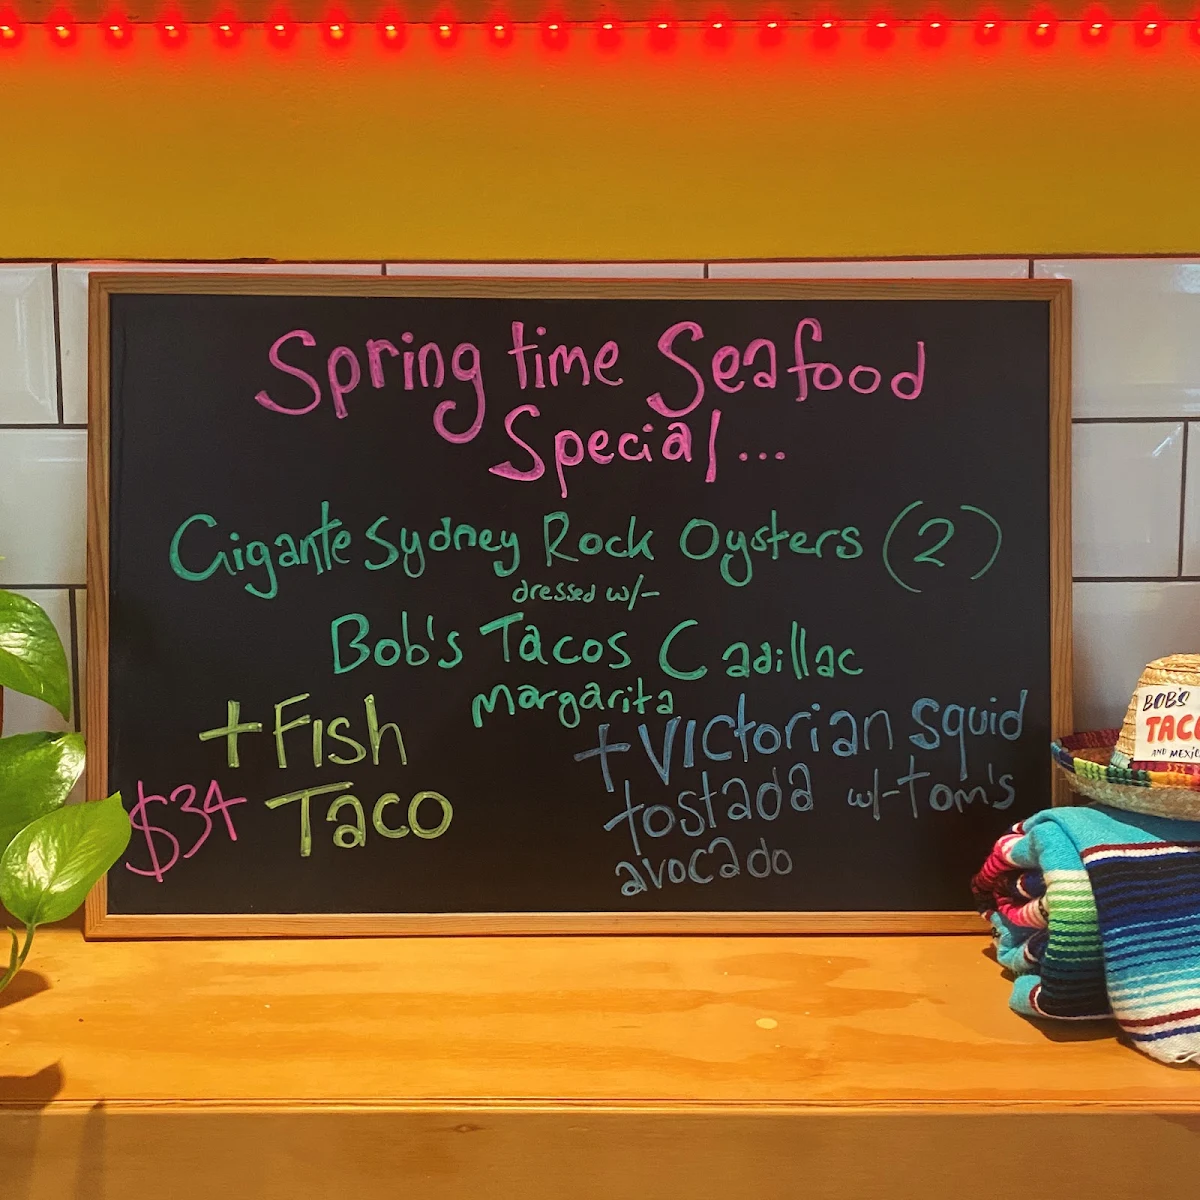 Spring time Seafood
Special...
Gigante Sydney Rock Oysters (2)
dressed w/-
Bob's Tacos Cadillac
margarita
+ Fish
Taco
$34
+ Victorian squid
tostada w/- Tom's
avocado
BOB'S
TACO
AND MEXIC